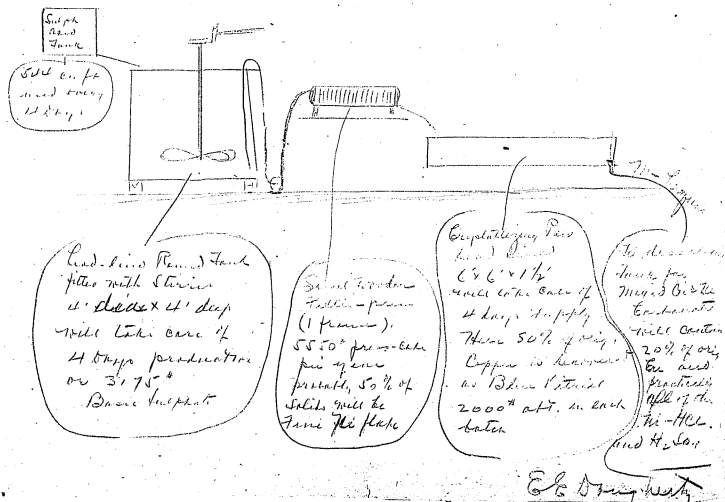 Sulph
Tank
544 cu ft
4 days.
Lead-lined Round Tank
fitted with Stirrer
4' deep
will take care of
4 Days production
or 3175#
Basic Sulphate
Small Wooden
Filter-press
(1 frame).
5550# press-cake
per year
probably 50% of
Solids will be
Crystallizing Pan
lead lined
6' x 6' x 1½'
will take care of
4 days supply
Here 50% of orig.
Copper is recovered
as Blue Vitriol
2000# apt. in each
batch
M- Liquor
To
Tank for
Mixed
Carbonate
will contain
20% of orig
Cu and
practically
all of the
Ni-HCl.
and H₂SO₄
EE Dougherty